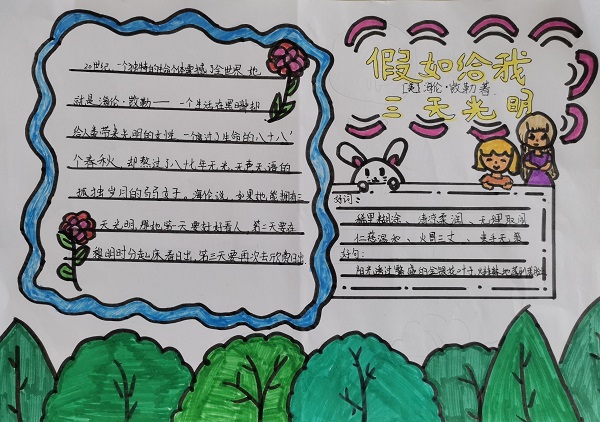 假如给我
[美]海伦·凯勒著
三天光明
20世纪,一个独特的生命个体震撼了全世界,她
就是海伦·凯勒——一个生活在黑暗却
给人类带来光明的女性,一个度过了生命的八十八
个春秋,却熬过了八十七年无光、无声、无语的
孤独岁月的弱女子。海伦说,如果她能拥有三
天光明,那她第一天要好好看人,第二天要在
黎明时分起床看日出,第三天要再次去欣赏日出
好词:
糊里糊涂、清凉柔润、无理取闹
仁慈温和、火冒三丈、束手无策
好句:
阳光透过
的金银花叶子